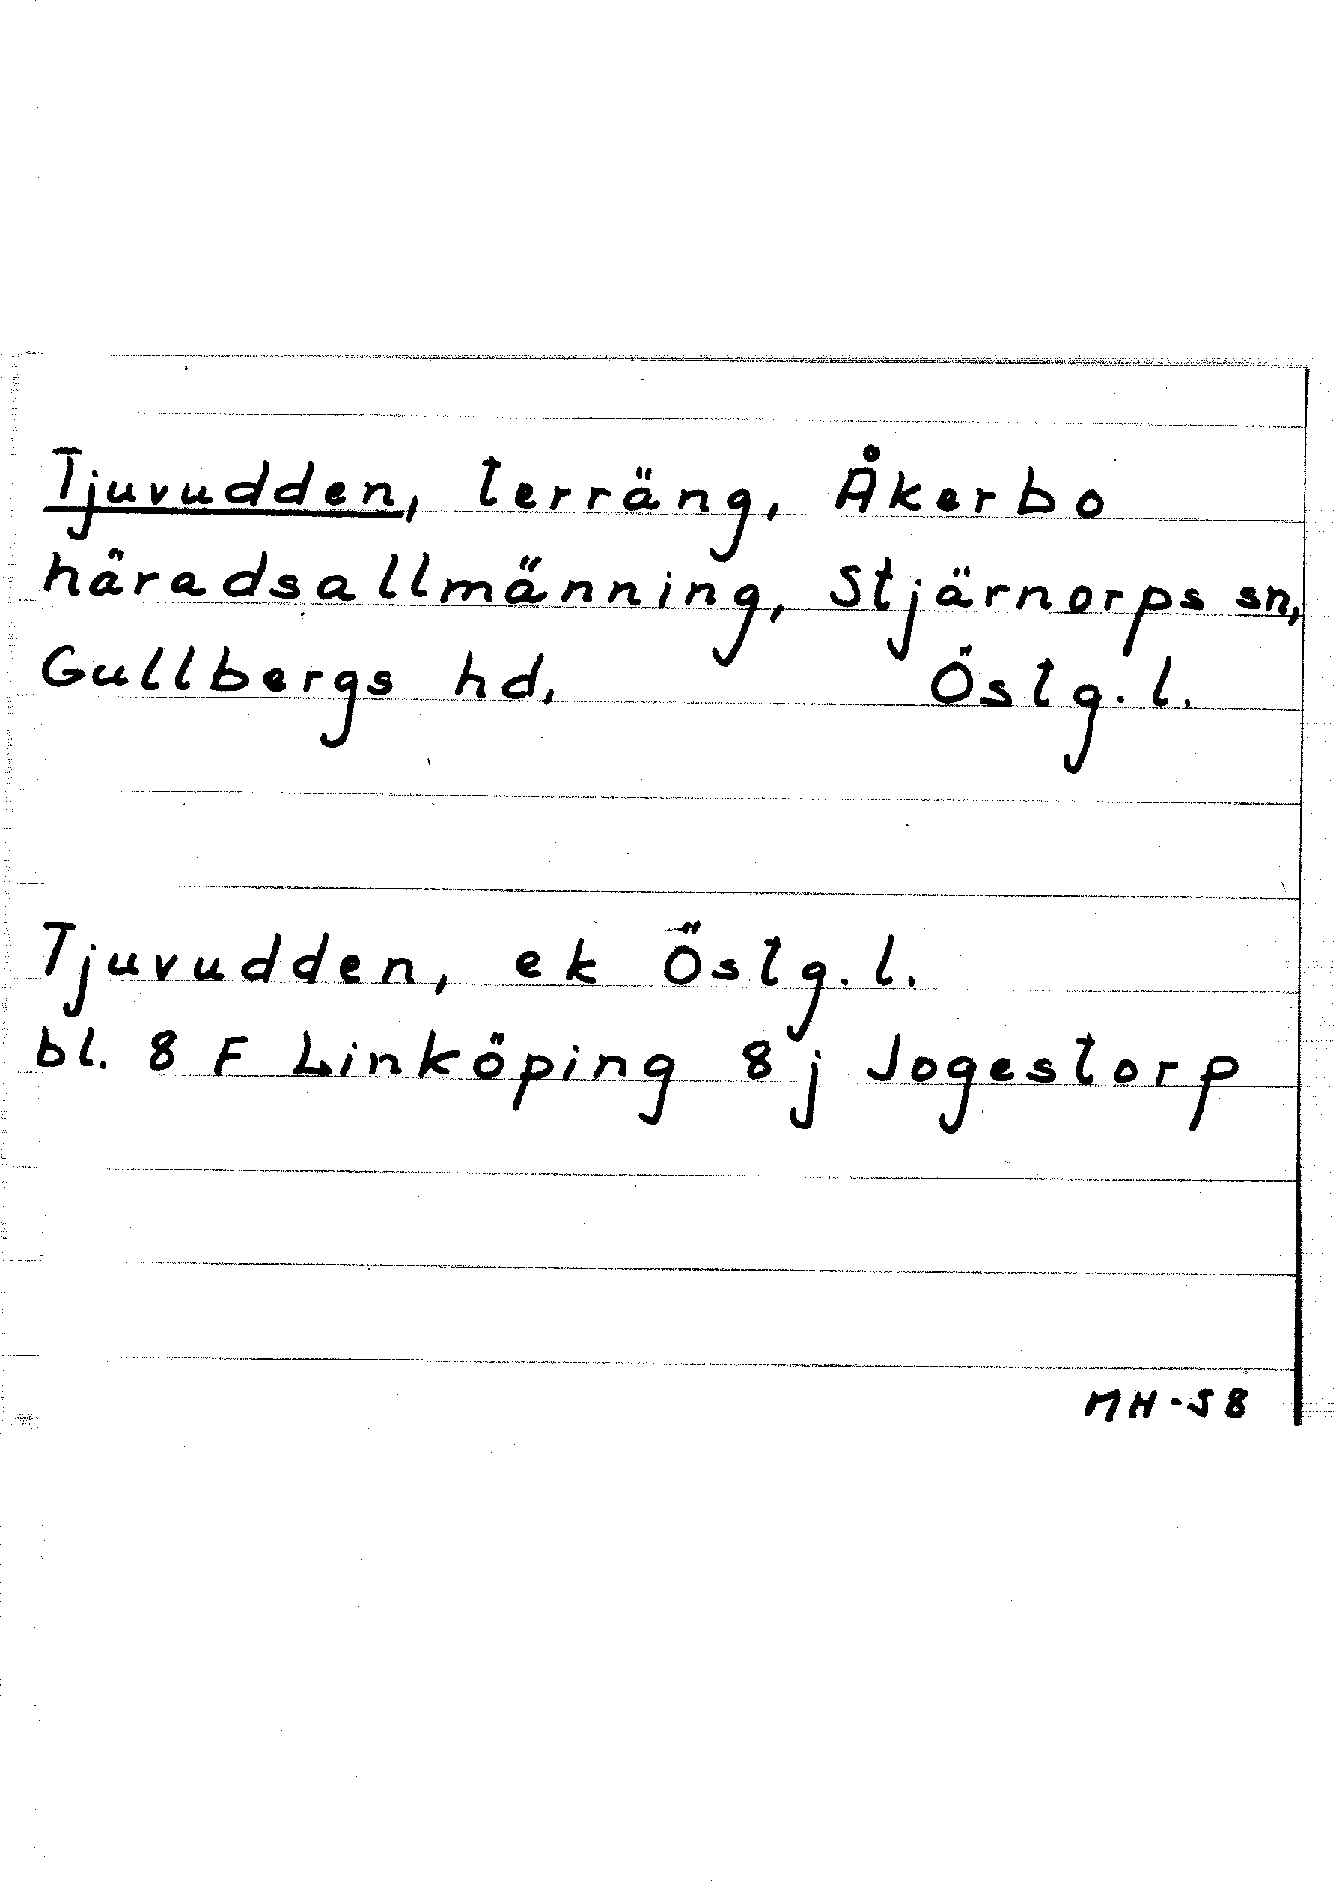 Tjuvudden, terräng, Åkerbo
häradsallmänning, Stjärnorps sn,
Gullbergs hd, Östg. l.
Tjuvudden, ek Östg. l.
bl. 8 F Linköping 8 j Jogestorp
MH-58